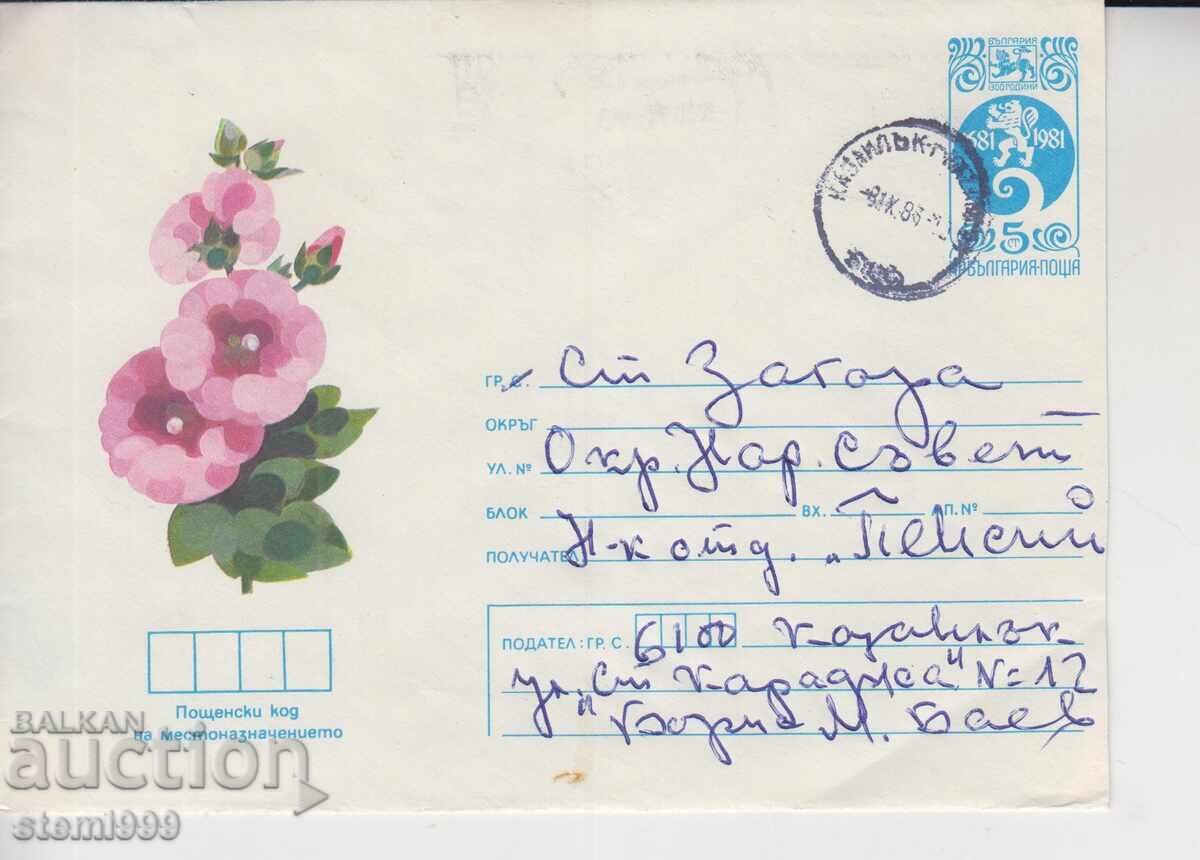 БЪЛГАРИЯ
1300 ГОДИНИ
681 1981
5 СТ
НР БЪЛГАРИЯ·ПОЩА
КАЗАНЛЪК-ГМК
ГР. С. Ст Загора
ОКРЪГ
УЛ. № Окр. Нар. Съвет
БЛОК ВХ. АП. №
ПОЛУЧАТЕЛ Н-к отд. „Пенсий
ПОДАТЕЛ: ГР. С. 6100 Казанлък
ул. „Ст Караджа" N=12
Борис М. Баев
Пощенски код
на местоназначението
BALKAN
auction
stemi999